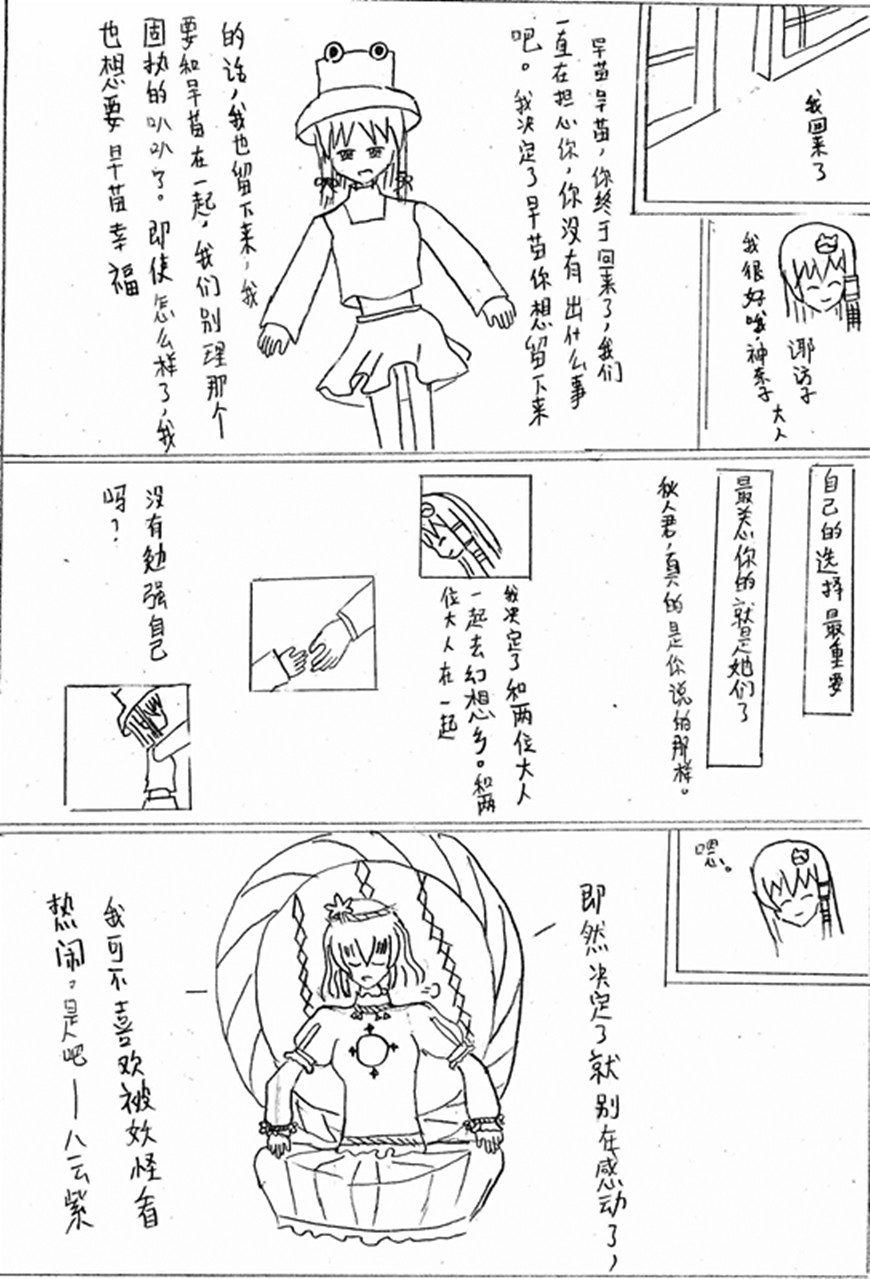 我回来了
我很好哦，神奈子
诹访子
大人
早苗早苗，你终于回来了，我们
一直在担心你，你没有出什么事
吧。我决定了早苗你想留下来
的话，我也留下来，我
要和早苗在一起，我们别理那个
固执的叭叭了。即使怎么样了，我
也想要早苗幸福
自己的选择最重要
最关心你的就是她们了
秋人君，真的是你说的那样。
我决定了和两位大人
一起去幻想乡。和两
位大人在一起
没有勉强自己
吗？
嗯。
即然决定了就别在感动了，
我可不喜欢被妖怪看
热闹。是吧—八云紫